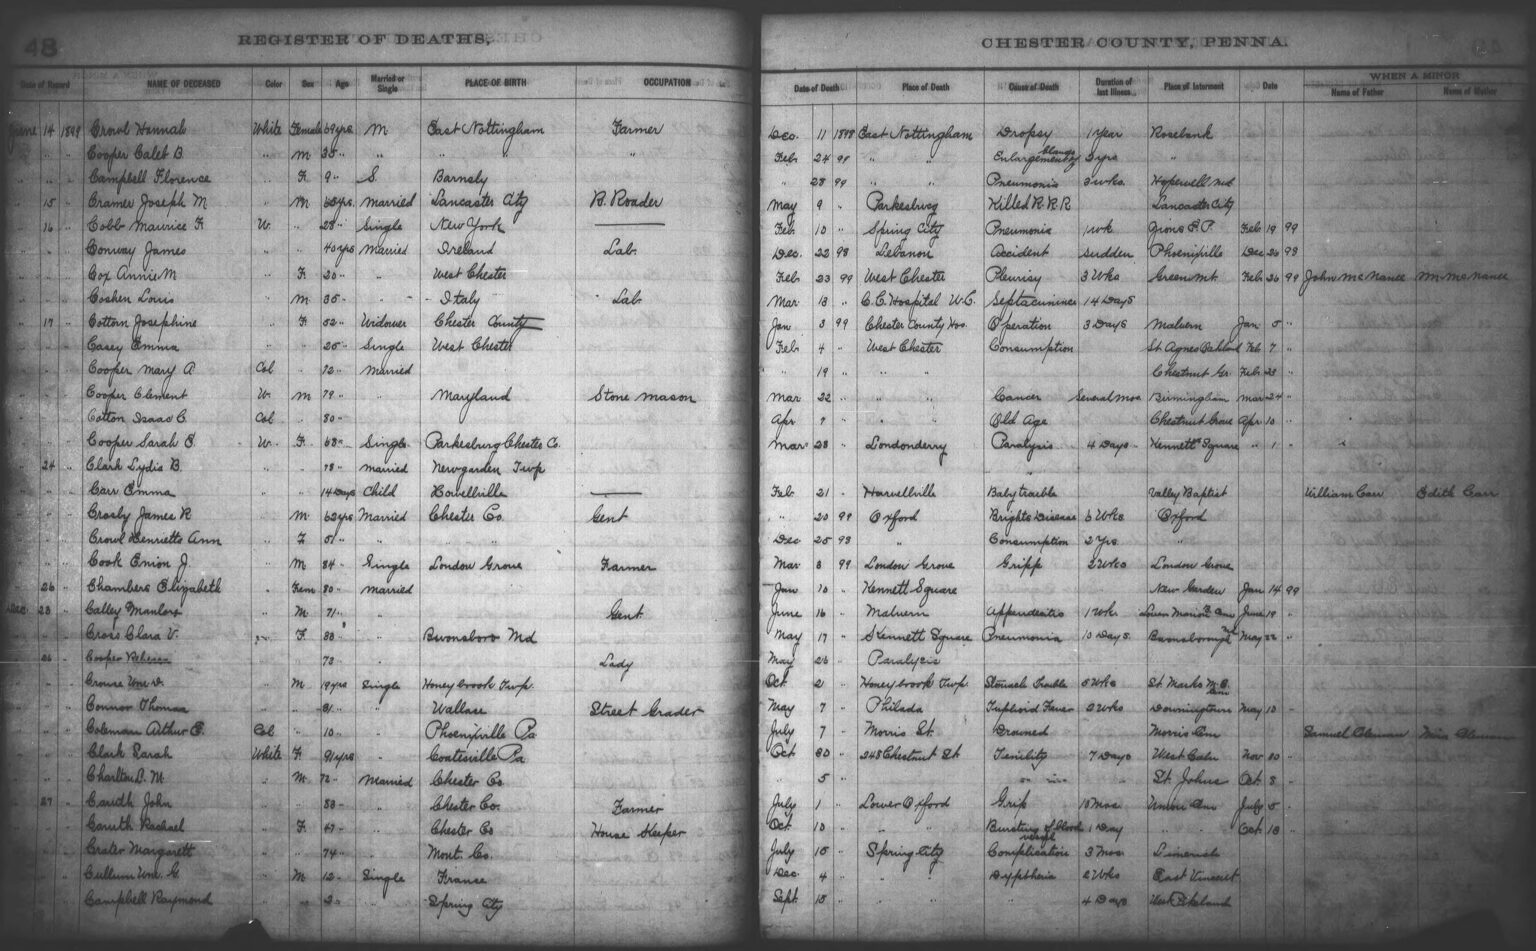 48 REGISTER OF DEATHS, CHESTER COUNTY, PENNA.
WHEN A MINOR
Date of Record NAME OF DECEASED Color Sex Age Married or Single PLACE OF BIRTH OCCUPATION Date of Death Place of Death Cause of Death Duration of last Illness Place of Interment Date Name of Father Name of Mother
June 14 1899 Crowl Hannah White Female 69 yrs M East Nottingham Farmer Dec. 11 1898 East Nottingham Dropsy 1 year Rosebank
" " Cooper Caleb B. " M 35 " " " " " Feb 24 98 " " Enlargement of 3 yrs "
" " Campbell Florence " F 9 " S Barnsly " 28 99 " " Pneumonia 3 wks. Hopewell
" 15 " Cramer Joseph M " M 65 yrs. married Lancaster City R. Roader May 9 " Parkesburg Killed R.R.R Lancaster City
" 16 " Cobb Maurice F W. " 28 " Single New York Feb. 10 " Spring City Pneumonia 1 wk Feb 19 99
" " Conway James " " 40 yrs Married Ireland Lab. Dec. 22 98 Lebanon Accident sudden Phoenixville Dec 26 98
" " Cox Annie M " F 20 " " West Chester Feb 23 99 West Chester Pleurisy 3 Wks Green Mt. Feb 26 99 John McNanee Mr. McNanee
" " Coshen Louis " M 35 " " Italy Lab. Mar 13 " C.C. Hospital W.C. 14 Days
" 17 " Cottom Josephine " F 52 " Widower Chester County Jan 3 99 Chester County Hos. Operation 3 Days Malvern Jan 5 "
" " Casey Emma " " 25 " Single West Chester Feb 4 " West Chester Consumption St. Agnes Feb 7 "
" " Cooper Mary A Col " 72 " married " 19 " " " Chestnut Gr. Feb 23 "
" " Cooper Clement W M 79 " " Maryland Stone Mason Mar 22 " " " Cancer Several Mos Birmingham Mar 24 "
" " Cotton Isaac C. Col " 80 " Apr 7 " " " Old Age Chestnut Grove Apr 10 "
" " Cooper Sarah E. W. F. 68 " Single Parkesburg Chester Co. Mar 28 " Londonderry Paralysis 4 Days Kennett Square " 1 "
" 24 " Clark Lydia B. " " 78 " married Newgarden Twp
" " Carr Emma " " 14 Days Child Howellville Feb 21 " Howellville Baby trouble Valley Baptist William Carr Edith Carr
" " Crosby James R " M 62 yrs Married Chester Co. Gent " 20 99 Oxford Brights Disease 6 Wks Oxford
" " Crowl Henrietta Ann " F 51 " " " Dec 25 98 " Consumption 2 Yrs. "
" " Cook Enion J. " M 84 " Single London Grove Farmer Mar 8 99 London Grove Gripp 2 Wks London Grove
" 26 " Chambers Elizabeth " Fem 80 " married Jan 10 " Kennett Square New Garden Jan 14 99
Dec 23 " Calley " M 71 " " Gent June 16 " Malvern Appendicitis 1 wk June 19 "
" " Cross Clara V. " F 33 " Boonsboro Md May 17 " Kennett Square Pneumonia 10 Days Boonsborough Md May 22 "
" 26 " Cooper Rebecca " " 73 " Lady May 26 " Paralysis
" " Crouse Wm D. " M 19 yrs Single Honeybrook Twp. Oct 2 " Honeybrook Twp. Stomach Trouble 5 Wks St. Marks
" " Connor Thomas " " 31 " " Wallace Street Grader May 7 " Philada Typhoid Fever 2 Wks Downingtown May 10 "
" " Coleman Arthur E. Col " 10 " " Phoenixville Pa July 7 " Morris St. Drowned Morris Cem Samuel Coleman
" " Clark Sarah White F 91 yrs " Coatesville Pa Oct 30 " 248 Chestnut St Senility 7 Days West Caln Nov
" " Charlton D. M. " M 72 " Married Chester Co. " 5 " St. Johns Oct 8 "
" 27 " Caruth John " " 53 " " Chester Co. Farmer July 1 " Lower Oxford Grip 18 Mos Union Cem July 5 "
" " Caruth Rachael " F 47 " " Chester Co House Keeper Oct 10 " " " Bursting of blood vessel 1 Day " " Oct 18 "
" " Crater Margarett " " 74 " " Mont. Co. July 15 " Spring City Complication 3 Mos Limerick
" " Cullum Wm. G " M 12 " Single France Dec. 4 " " " Dyptheria 2 Wks East Vincent
" " Campbell Raymond " " 2 " " Spring Cty Sept 15 " " " " 4 Days West Pikeland